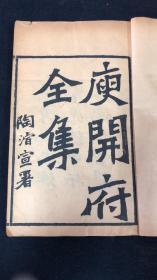 庾開府
全集
陶濬宣署